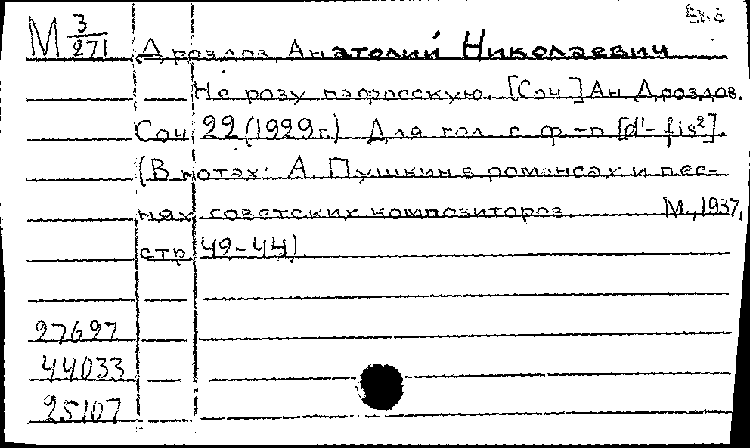 М 3/271 Дроздов, Анатолий Николаевич
Не розу пафосскую. [Соч.] Ан. Дроздов.
Соч. 22 (1929 г.) Для гол. с ф-п [d'-fis²].
(В нотах: А. Пушкин в романсах и пес-
нях советских композиторов. М., 1937,
стр. 49-44)
27697
44033
25107